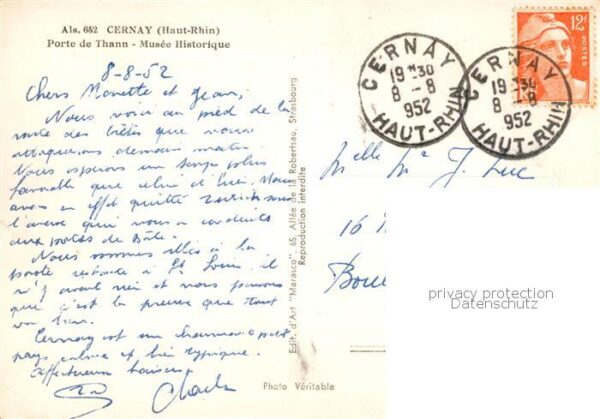 Als. 652 CERNAY (Haut-Rhin)
Porte de Thann - Musée Historique
8-8-52
Chers Monette et Jean,
Nous voici au pied de la
route des crêtes que nous
attaquerons demain matin
Nous espérons un temps plus
favorable que celui d'hier. Nous
avons en effet quitté Zurich sous
l'averse qui nous a conduits
aux portes de Bâle.
Nous sommes allés à la
poste restante à St Louis, il
n'y avait rien et nous pensons
que c'est la preuve que tout
va bien.
Cernay est un charmant petit
pays calme et bien typique.
Affectueux baisers
Charles
Edit. d'Art "Marasco", 65, Allée de la Robertsau, Strasbourg
Reproduction interdite
Photo Véritable
12F
POSTES
CERNAY
19H30
8-8
952
HAUT-RHIN
CERNAY
19H30
8-8
952
HAUT-RHIN
Melle J. Luc
16
privacy protection
Datenschutz